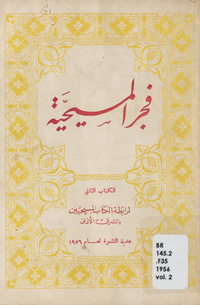 فجر المسيحية
الكتاب الثاني
لرابطة الكتاب المسيحيين
بالشرق الأدنى
هدية النشرة لعام ١٩٥٦
BR
145.2
.F35
1956
vol. 2